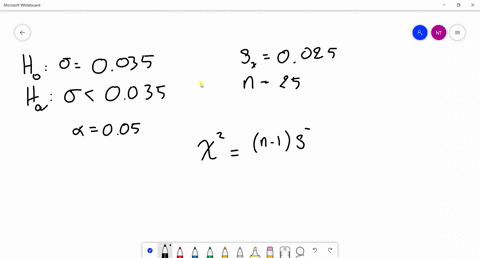 Microsoft Whiteboard
NT
H₀: σ = 0.035
Hₐ: σ < 0.035
α = 0.05
Sₓ = 0.025
n = 25
χ² = (n-1) S